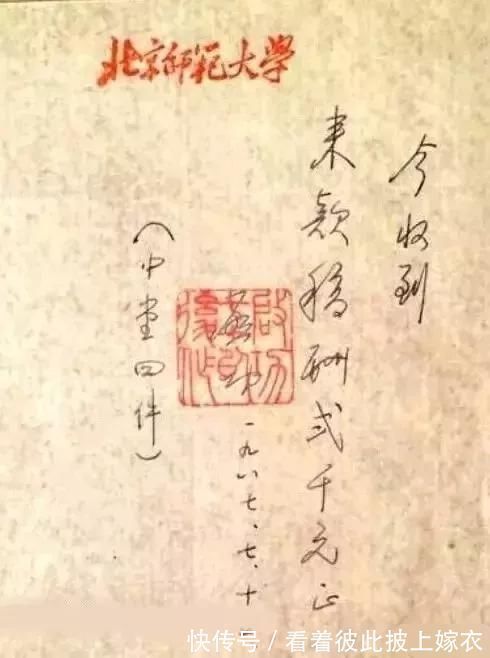 北京师範大學
今收到
来款稿酬弍千元正
启功
一九八七、七、十
（中堂四件）
快传号／看着彼此披上嫁衣